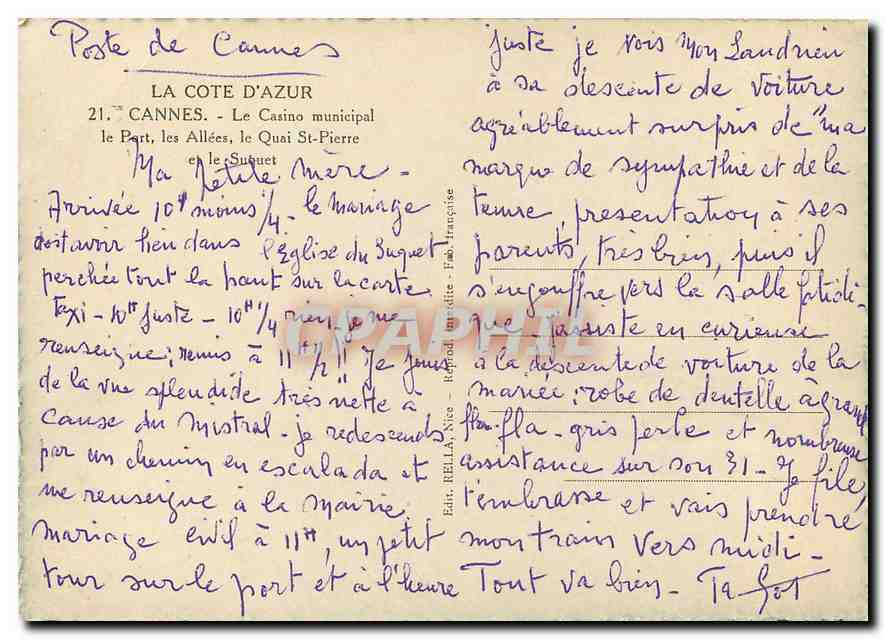 Poste de Cannes
LA COTE D'AZUR
21. - CANNES. - Le Casino municipal
le Port, les Allées, le Quai St-Pierre
et le Suquet
Ma petite mère -
Arrivée 10H moins 1/4 - le mariage
doit avoir lieu dans l'Eglise du Suquet
perchée tout là haut sur la carte
Taxi - 10H juste - 10H 1/4 rien, je me
renseigne; remis à 11H 1/2!! Je jouis
de la vue splendide très nette à
cause du mistral - je redescends
par un chemin en escalada et
me renseigne à la mairie:
mariage civil à 11H, un petit
tour sur le port et à l'heure
juste je vois mon Landrieu
à sa descente de voiture
agréablement surpris de "ma
marque de sympathie et de la
tenue, présentation à ses
parents, très bien, puis il
s'engouffre vers la salle fatidi-
que. J'assiste en curieuse
à la descente de voiture de la
mariée: robe de dentelle à grand
fla-fla - gris perle et nombreuse
assistance sur son 31 - Je file,
t'embrasse et vais prendre
mon train vers midi -
Tout va bien - Ta
Edit. RELLA, Nice - Reprod. interdite - Fab. française
CPAPHIL